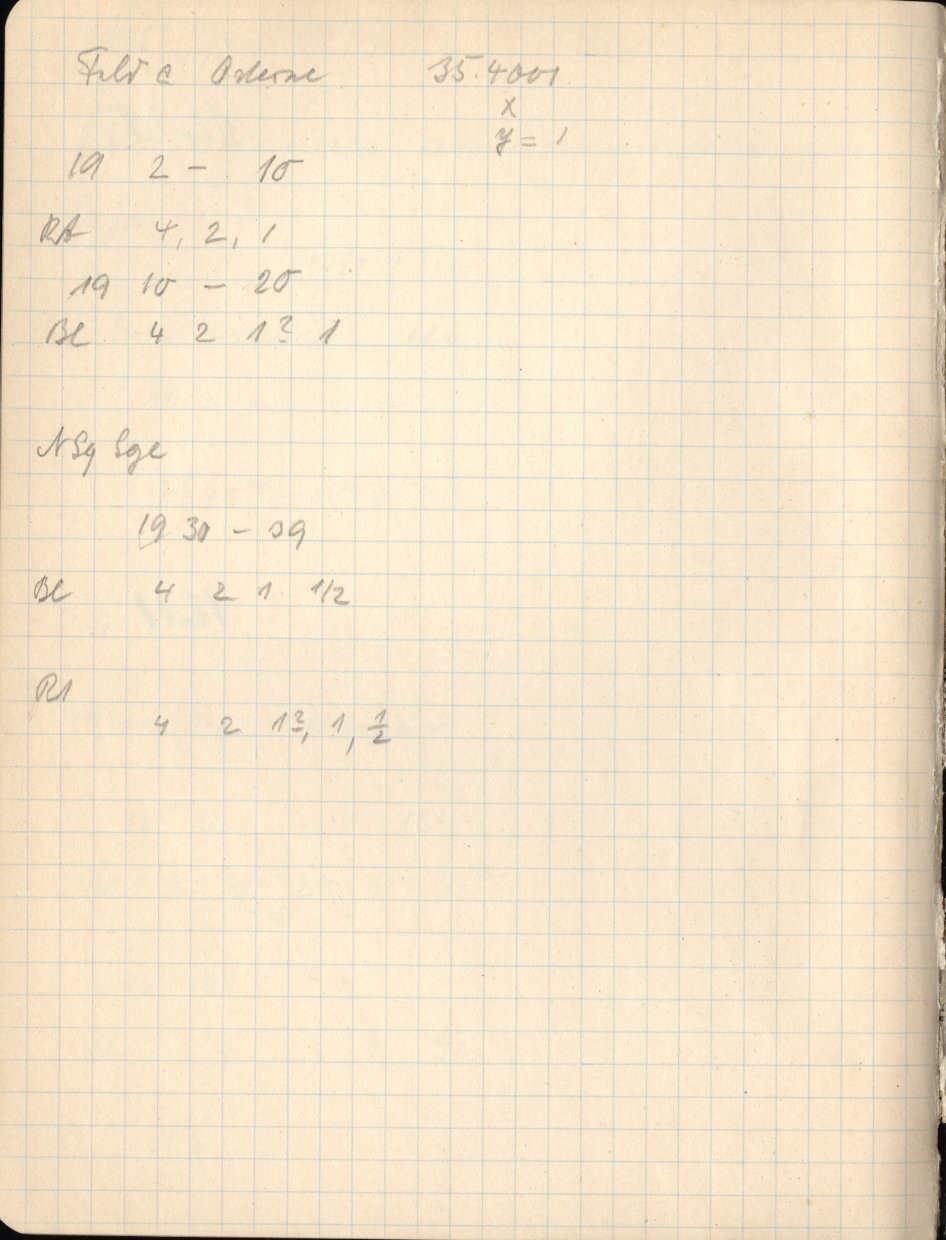 Feld c 35.4001
x
y = 1
19 2 - 10
Rt 4, 2, 1
19 10 - 20
Bl 4 2 1? 1
NSq Sge
19 30 - 39
Bl 4 2 1 1/2
Rt
4 2 1?, 1, 1/2